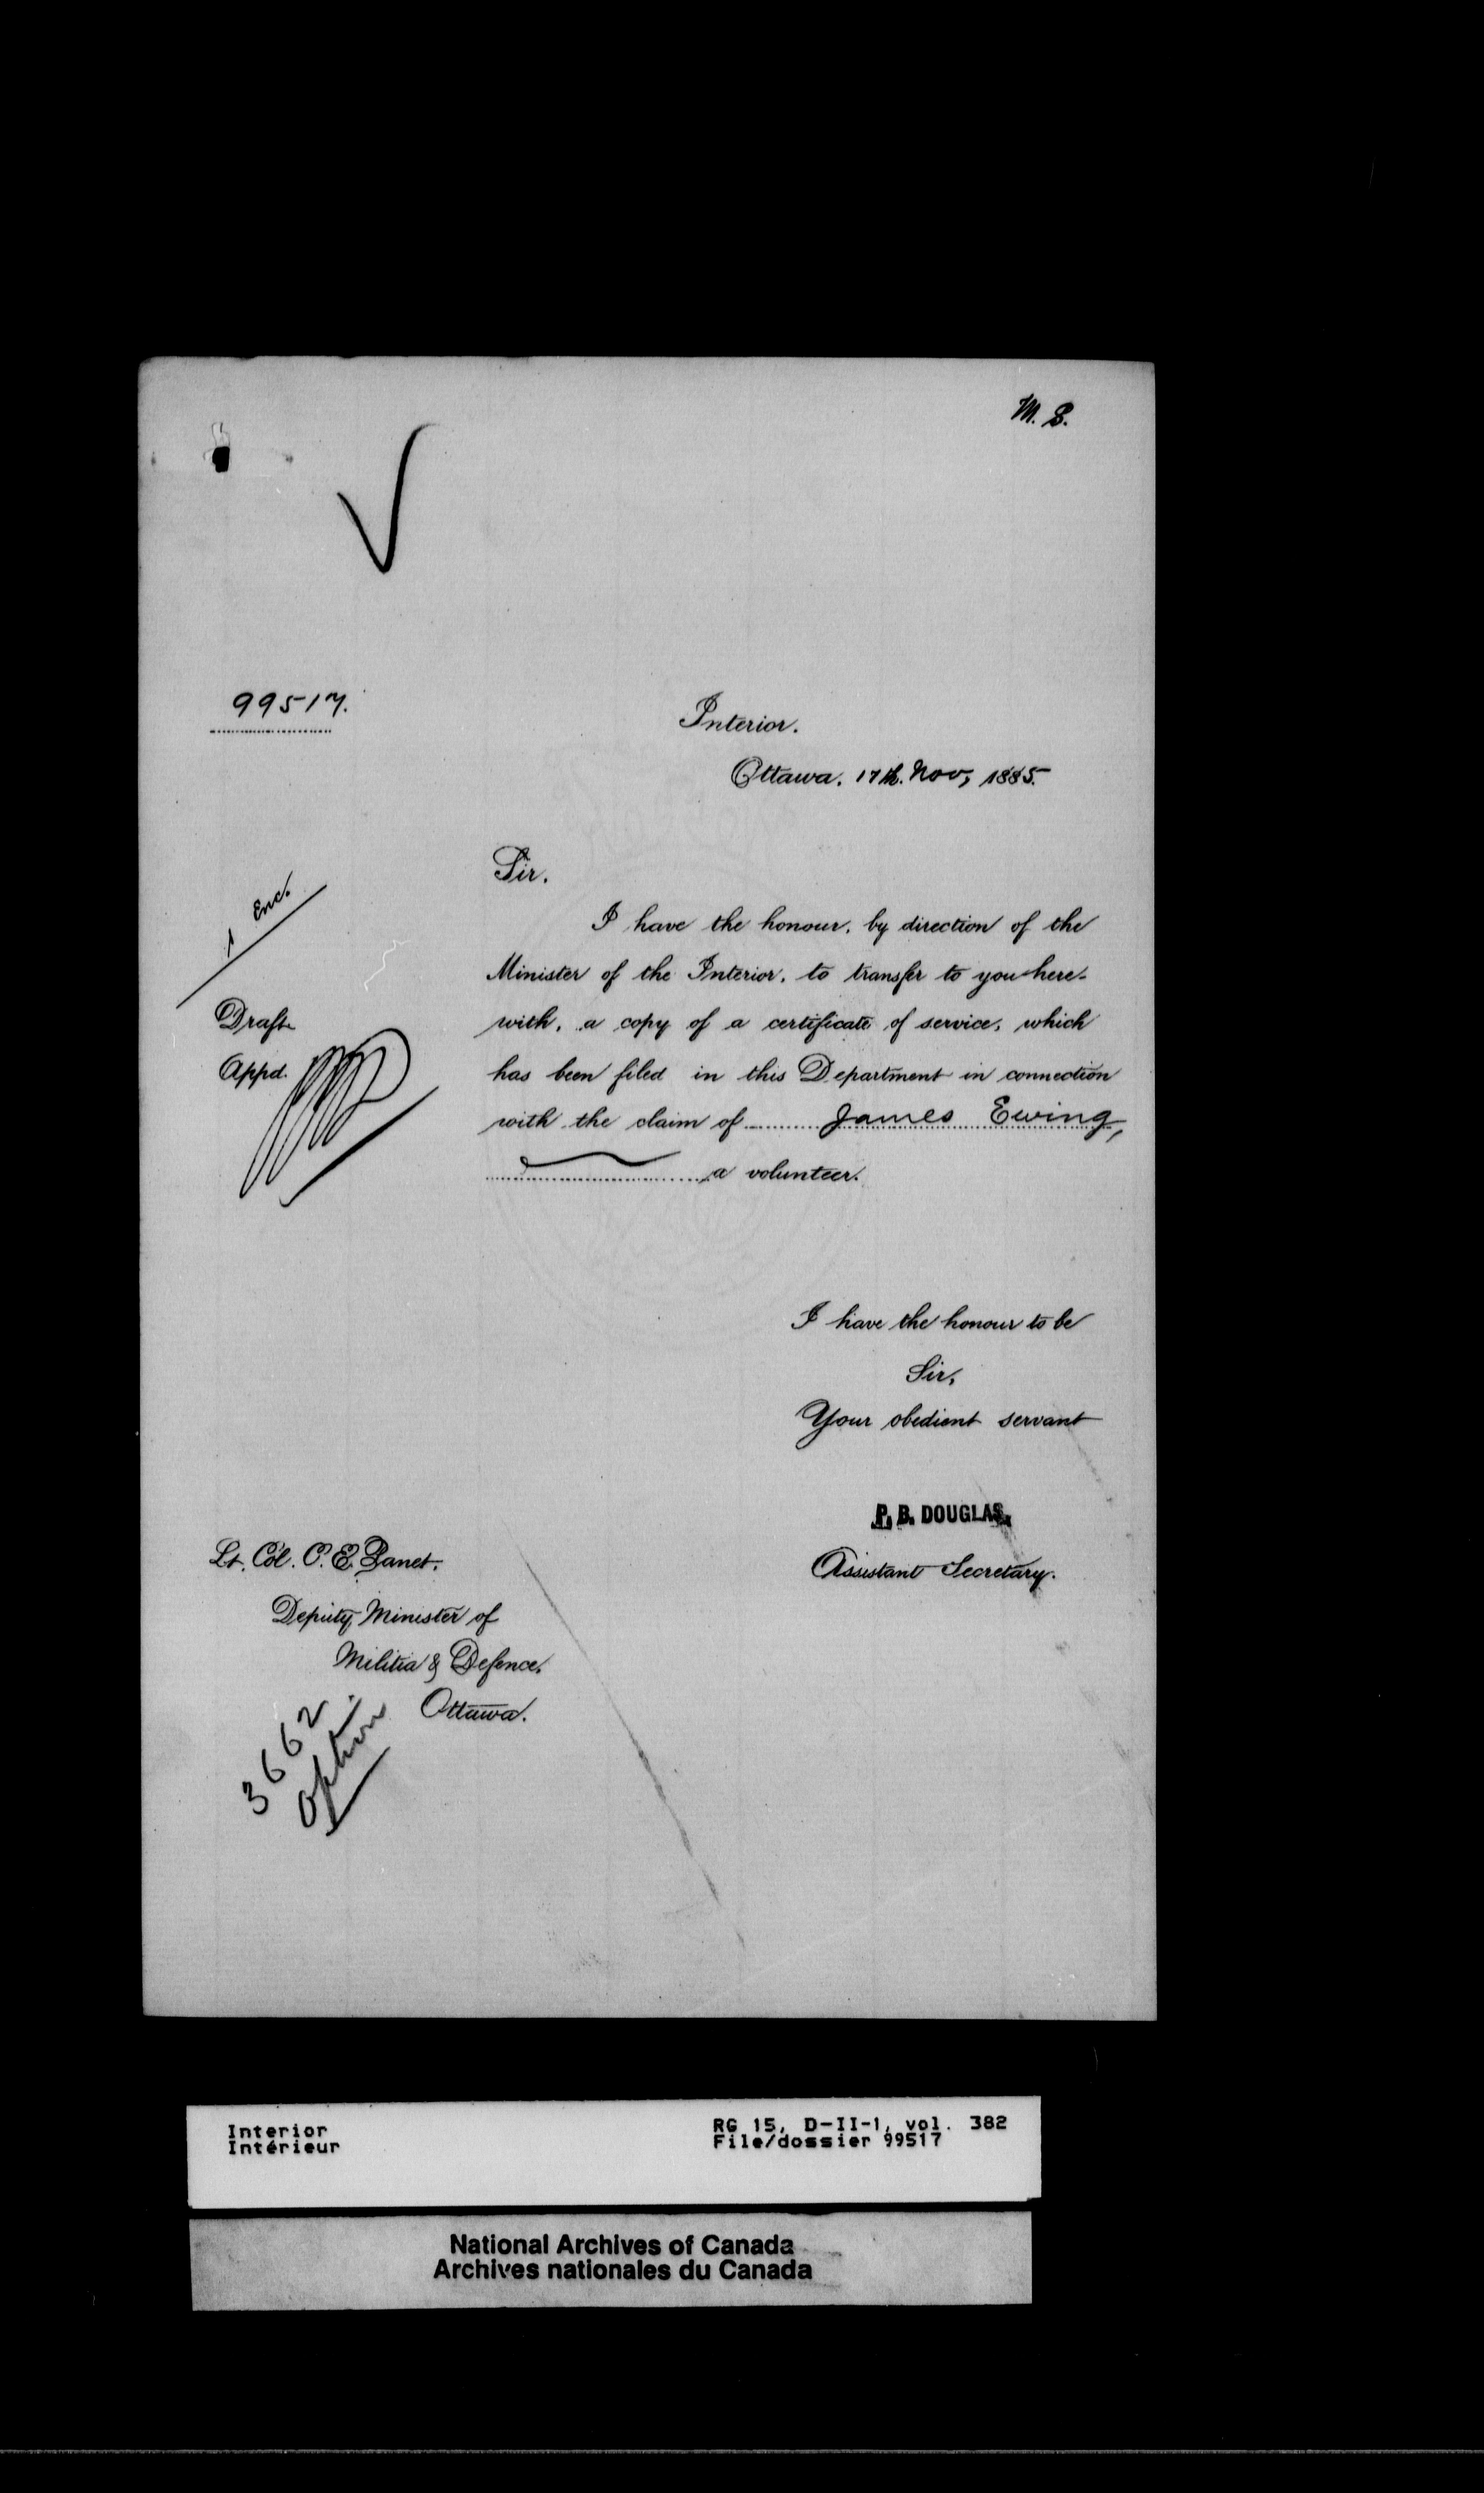 M. S.
99517.
Interior.
Ottawa. 17th. Nov, 1885.
Sir.
1 Enc.
I have the honour, by direction of the
Minister of the Interior, to transfer to you here-
with, a copy of a certificate of service, which
has been filed in this Department in connection
with the claim of James Ewing,
a volunteer.
Draft
Appd.
I have the honour to be
Sir,
Your obedient servant
P. B. DOUGLAS,
Assistant Secretary.
Lt. Col. C. E. Panet.
Deputy Minister of
Militia & Defence.
Ottawa.
3662.
Option
Interior
Intérieur
RG 15, D-II-1, vol. 382
File/dossier 99517
National Archives of Canada
Archives nationales du Canada